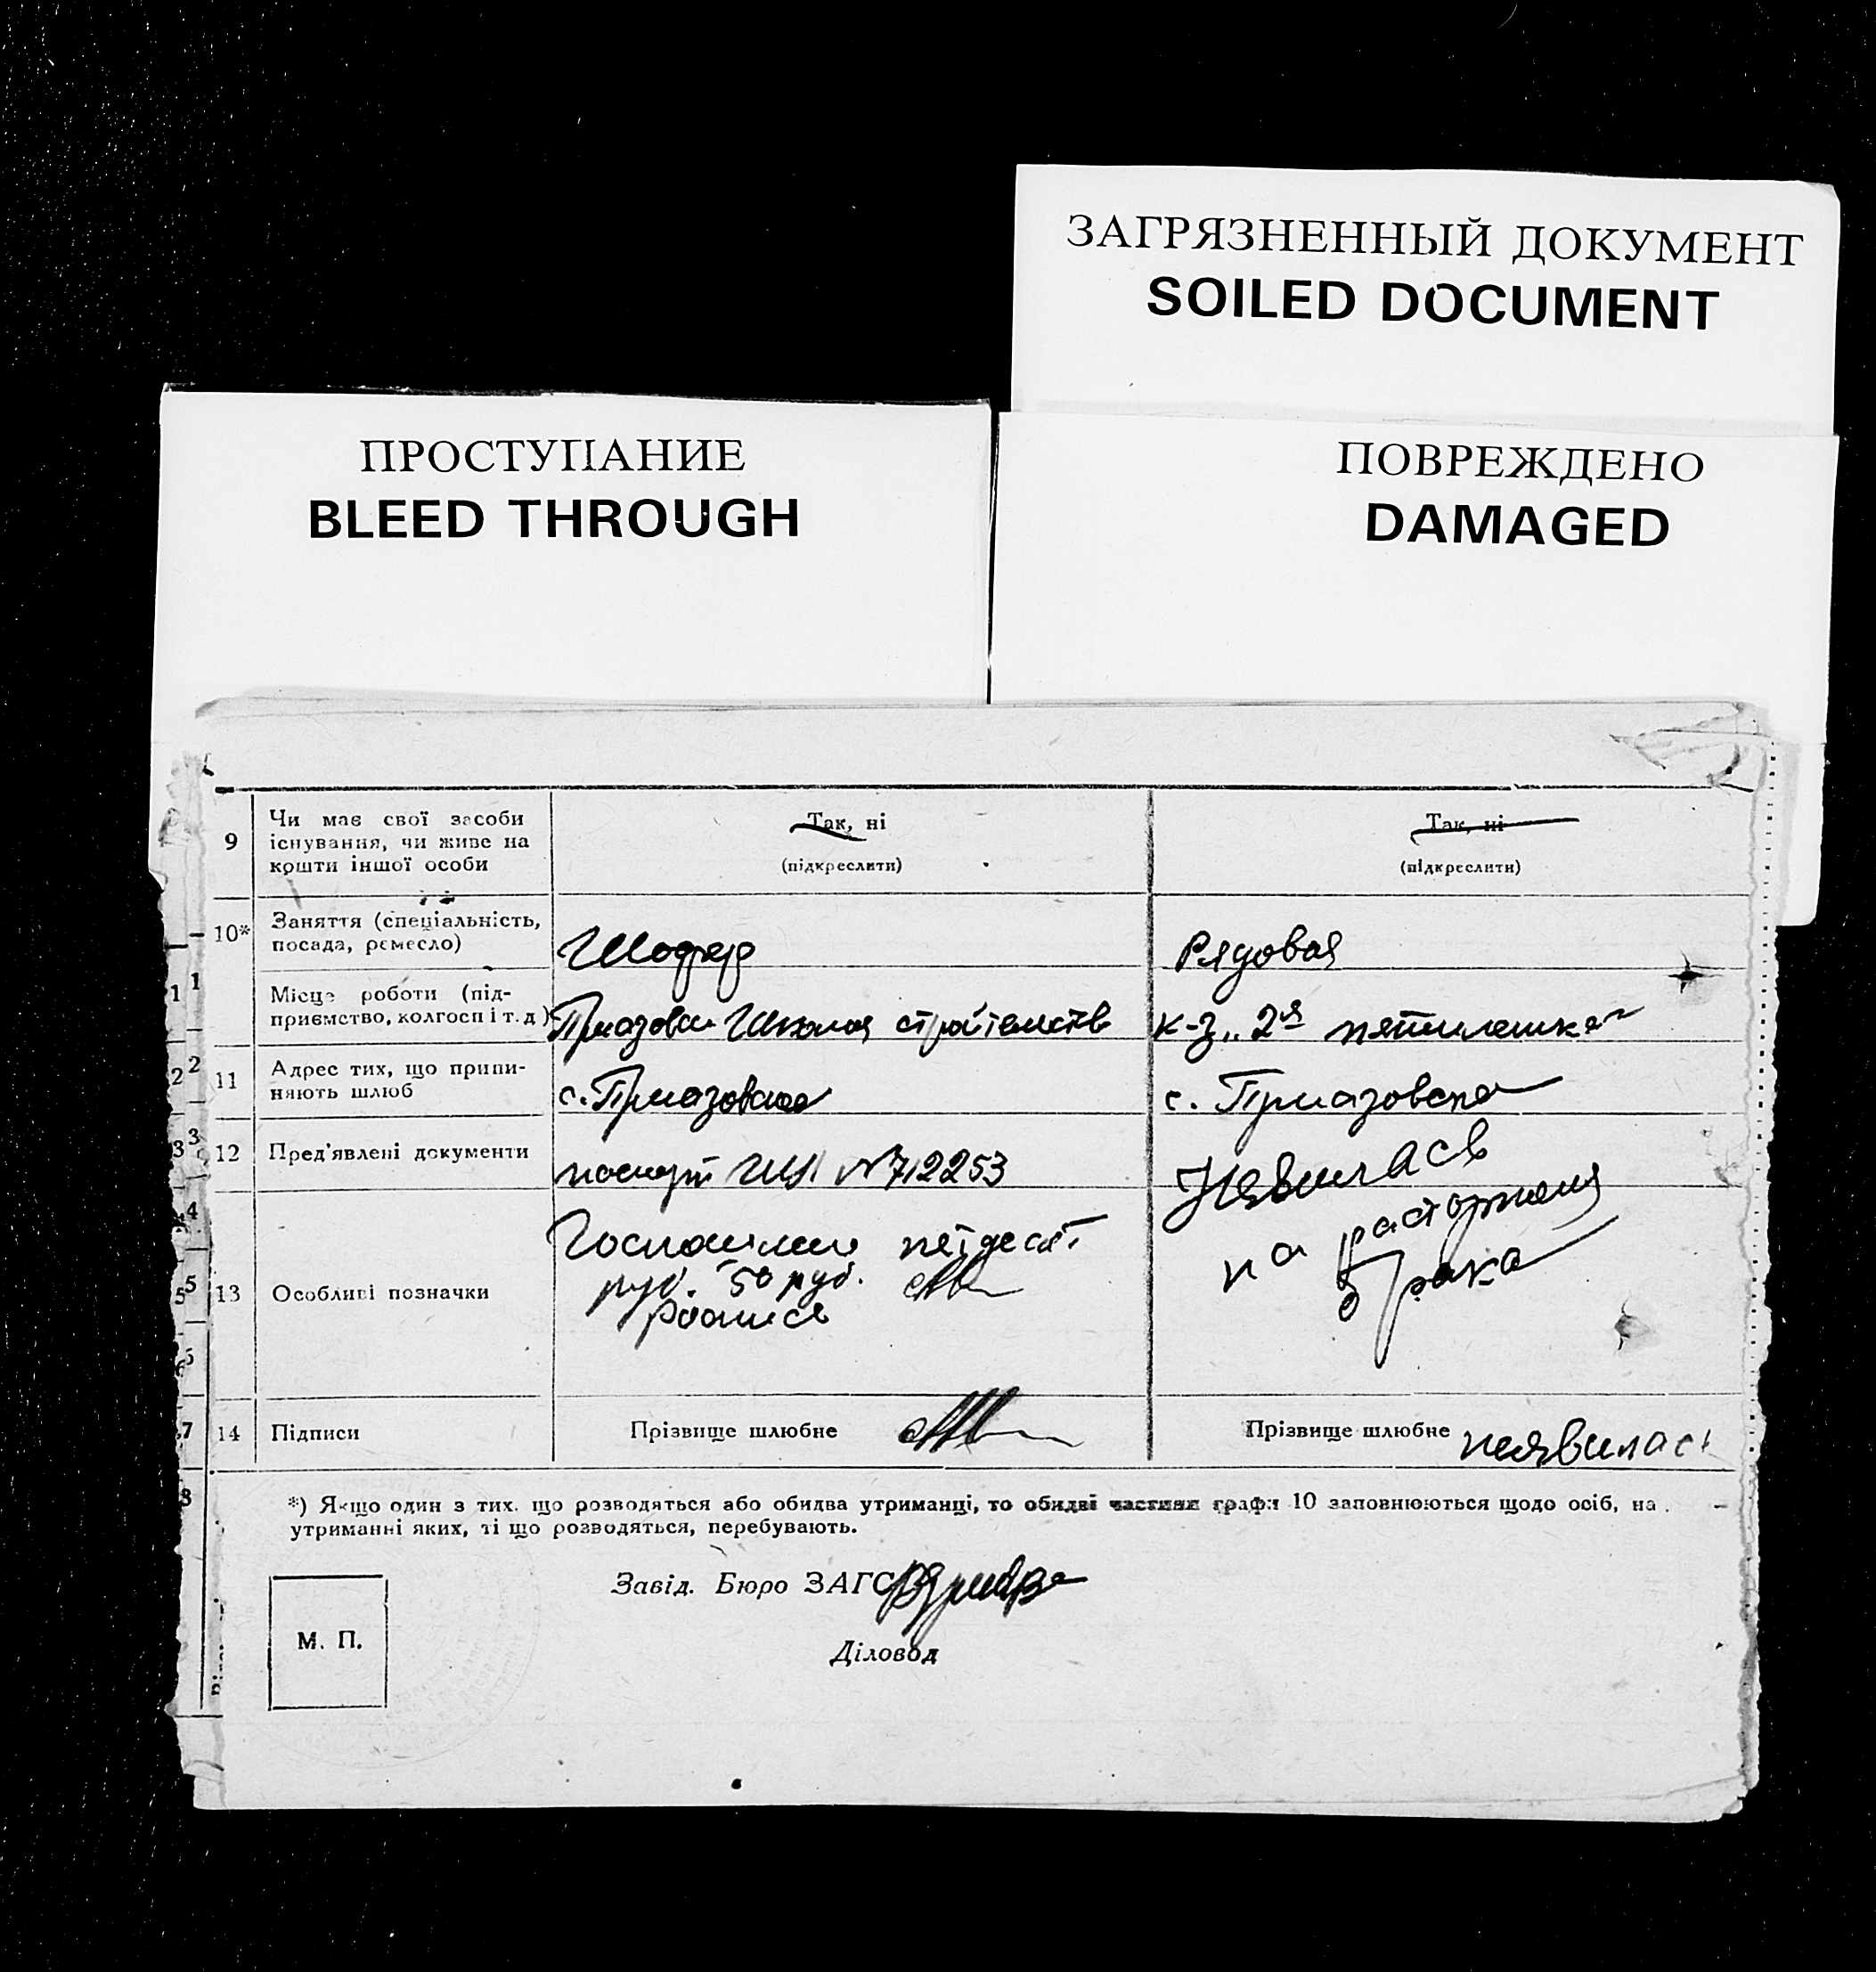 ЗАГРЯЗНЕННЫЙ ДОКУМЕНТ
SOILED DOCUMENT
ПРОСТУПАНИЕ
BLEED THROUGH
ПОВРЕЖДЕНО
DAMAGED
9
Чи має свої засоби
існування, чи живе на
кошти іншої особи
Так, ні
(підкреслити)
Так, ні
(підкреслити)
10*
Заняття (спеціальність,
посада, ремесло)
Шофер
Рядовая
Місце роботи (під-
приємство, колгосп і т. д)
к-з „ 2я пятилетка
11
Адрес тих, що припи-
няють шлюб
с. Приазовское
с. Приазовска
12
Пред'явлені документи
паспорт № 712253
Неявилась
на расторжения
брака
13
Особливі позначки
Госпошлини петдесят
руб. 50 руб.
14
Підписи
Прізвище шлюбне
Прізвище шлюбне неявилась
*) Якщо один з тих, що розводяться або обидва утриманці, то обидві частини графи 10 заповнюються щодо осіб, на
утриманні яких, ті що розводяться, перебувають.
Завід. Бюро ЗАГС
М. П.
Діловод